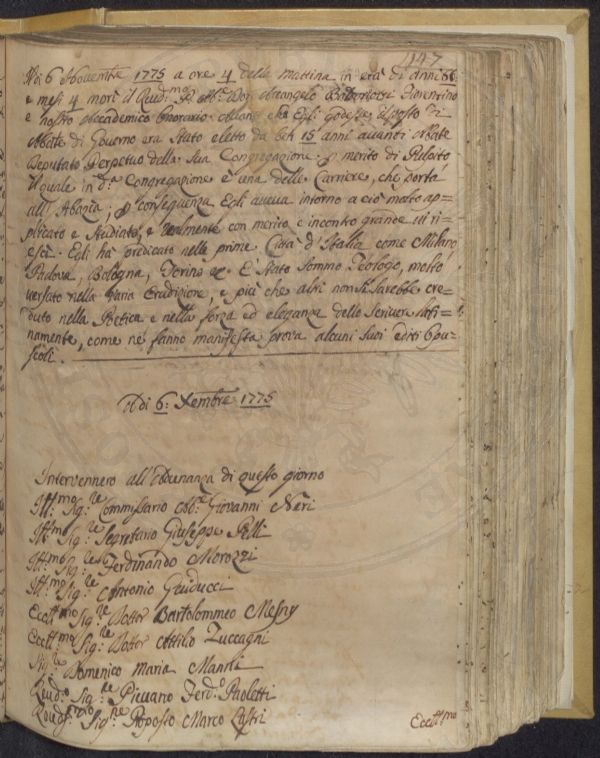 147
Adi 6 Novembre 1775 a ore 4 della mattina in età di Anni 66
e mesi 4 morì il Revd:mo P. Ab:e Don Arcangelo Fiorentino
e nostro Accademico Onorario. Egli godesse il posto di
Abate di Governo era stato eletto da 15 anni avanti Abate
Deputato Perpetuo della Sua Congregazione p merito di Pulpito
il quale in d:a Congregazione è una delle Carriere, che porta
all'Abazia; p conseguenza Egli aveva intorno a ciò molto ap=
plicato e studiato, e realmente con merito e incontro grande vi ri=
escì. Egli hà predicato nelle prime Città d'Italia come Milano
Padova, Bologna, Torino &c. È stato sommo Teologo, molto
versato nella varia Erudizione, e più che altri non si sarebbe cre=
duto nella Poetica e nella forza ed eleganza dello scrivere lati=
namente, come ne fanno manifesta prova alcuni suoi editi Opu=
scoli.
Adi 6: Xembre 1775
Intervennero all'Adunanza di questo giorno
Ill:mo Sig:re Commissario Ab:e Giovanni Neri
Ill:mo Sig:re Segretario Giuseppe Pelli
Ill:mo Sig:re Ferdinando Morozzi
Ill:mo Sig:re Antonio Guiducci
Eccll:mo Sig:re Dottor Bartolommeo Mesny
Eccll:mo Sig:re Dottor Attilio Zuccagni
Sig:re Domenico Maria Manni
Revd:o Sig:re Pievano Ferd:o Paoletti
Revd:mo Sig:re Proposto Marco Lastri
Eccll:mo